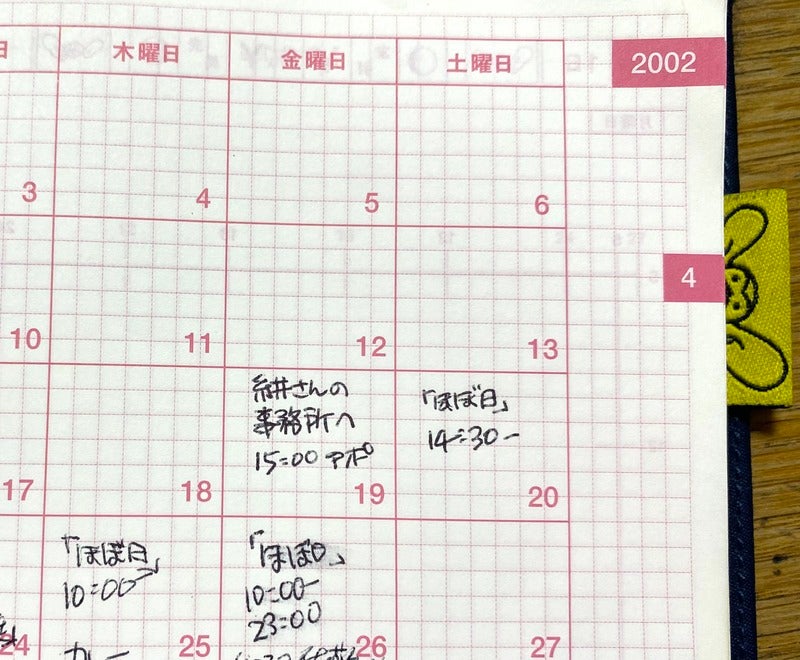 日
木曜日
金曜日
土曜日
2002
3
4
5
6
4
10
11
12
13
糸井さんの
事務所へ
15:00 アポ
「ほぼ日」
14:30〜
17
18
19
20
「ほぼ日」
10:00〜
カレー
「ほぼ日」
10:00〜
23:00
24
25
26
27